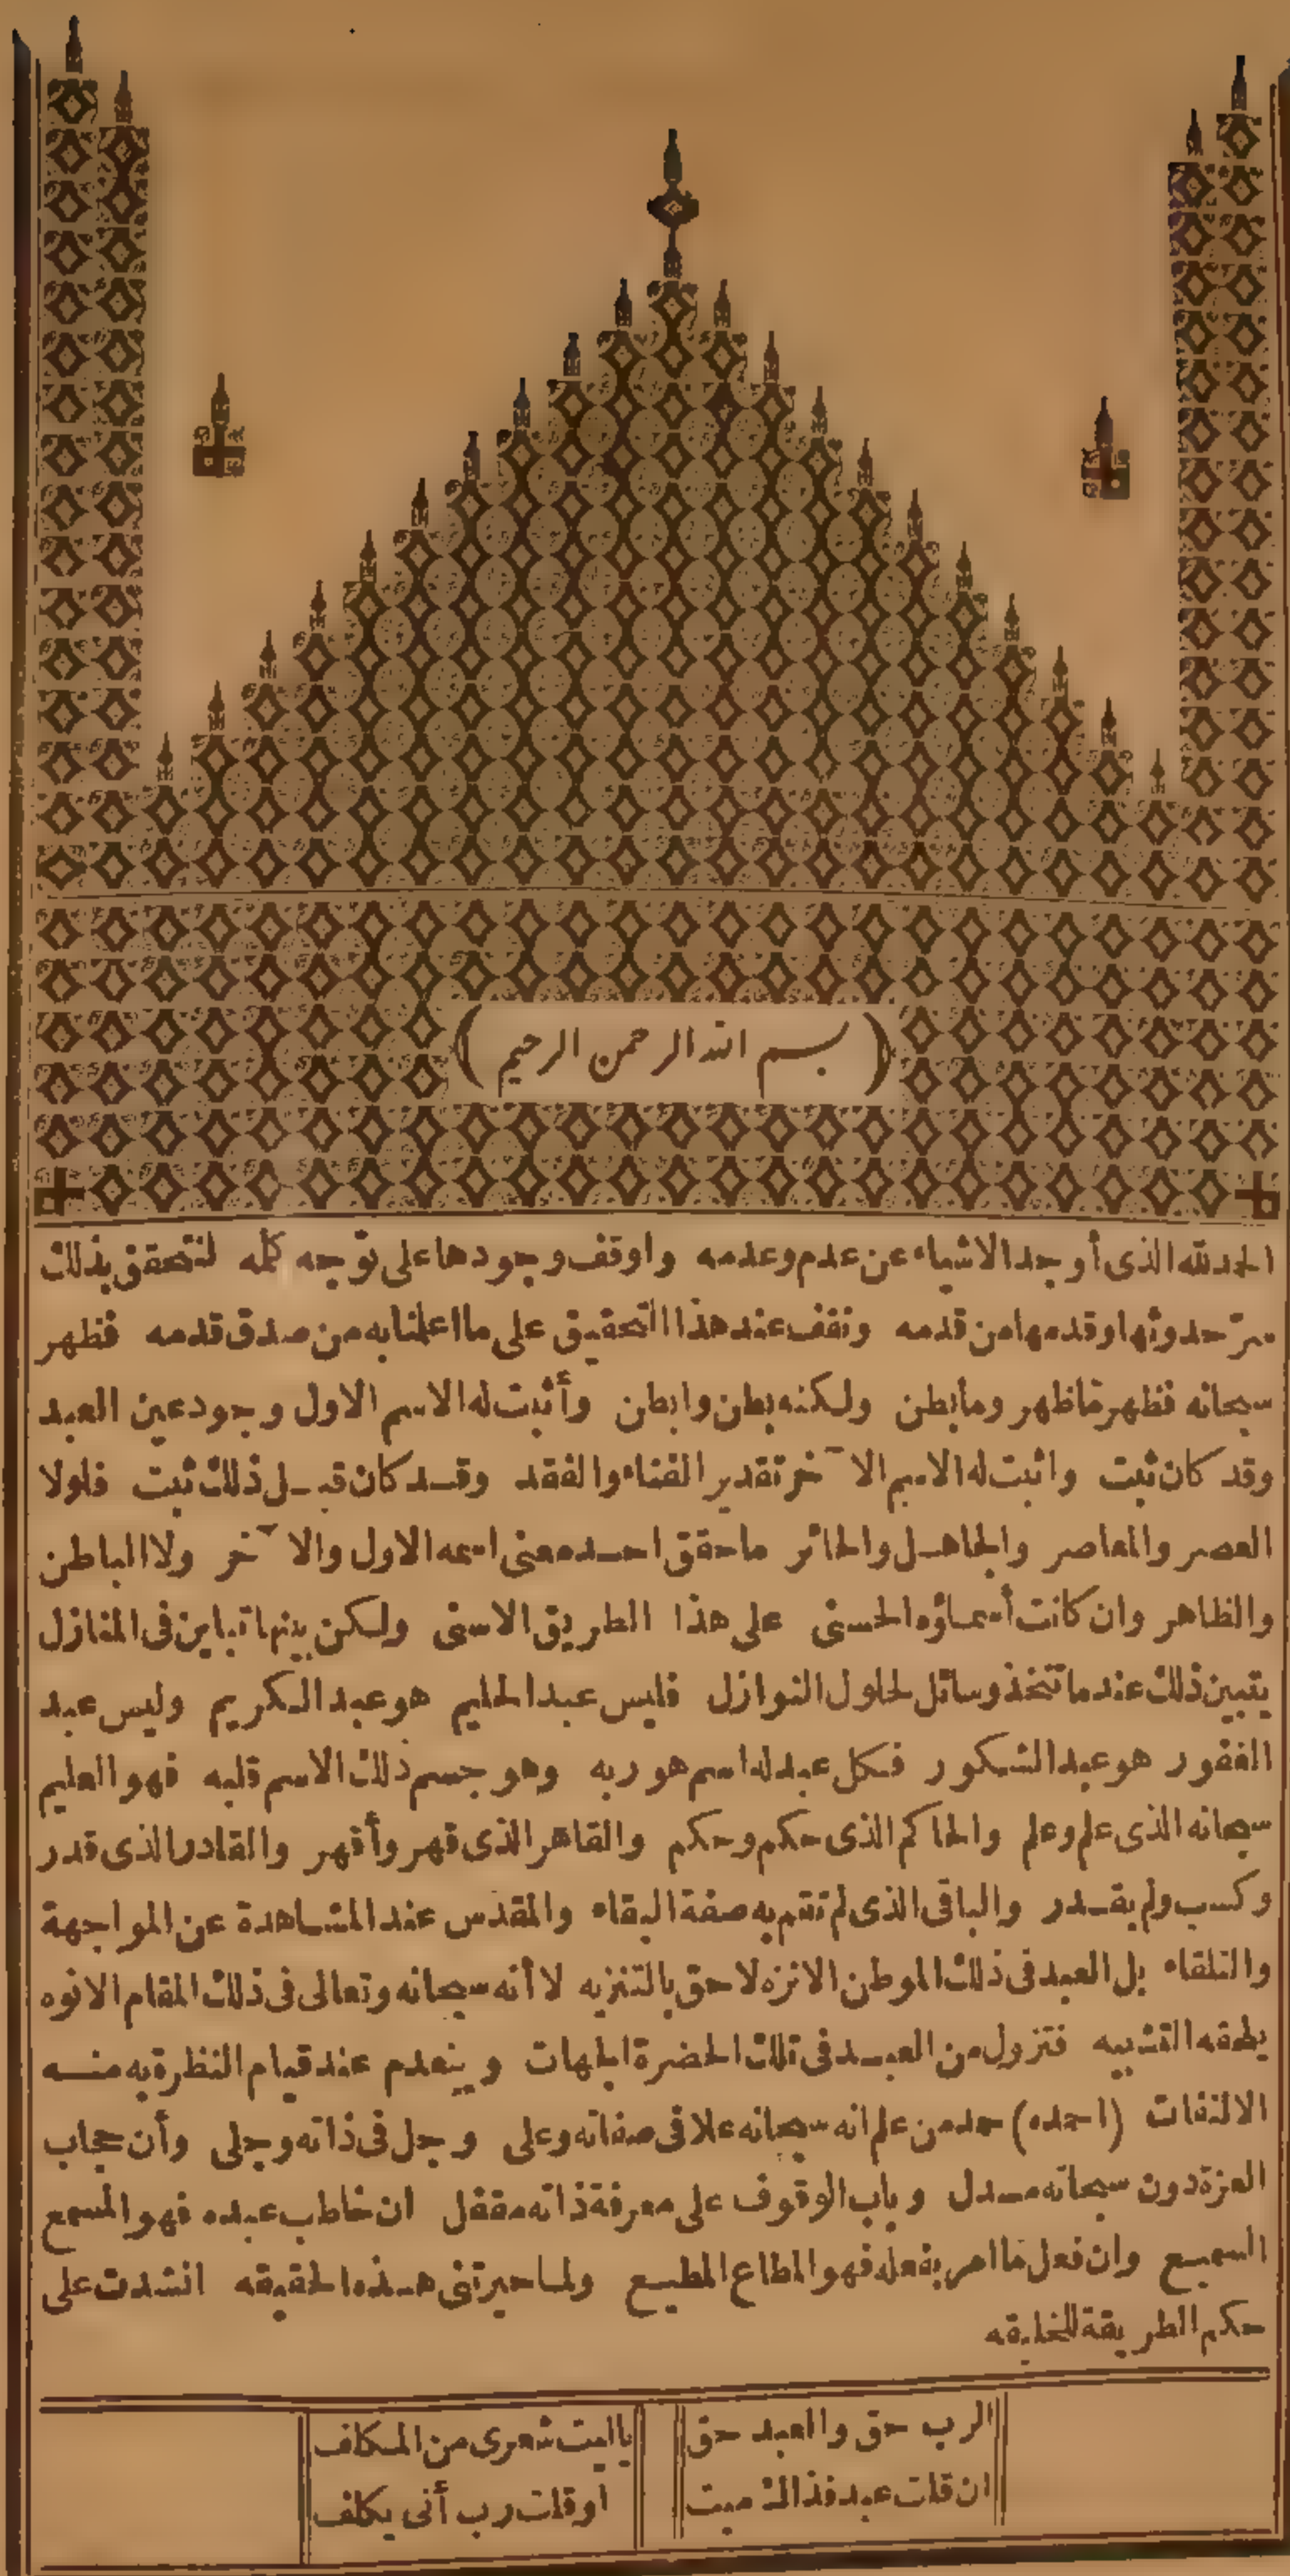 (بسم الله الرحمن الرحيم)
الحمد لله الذى أوجد الاشياء عن عدم وعدمه واوقف وجودها على توجه كلمه لنتحقق بذلك
سرّ حدوثها وقدمها من قدمه ونقف عند هذا التحقيق على ما اعلمنا به من صدق قدمه فظهر
سبحانه فظهر فاظهر وما بطن ولكنه بطن وابطن وأثبت له الاسم الاول وجود عين العبد
وقد كان ثبت واثبت له الاسم الآخر تقدير الفناء والفقد وقد كان قبل ذلك ثبت فلولا
العصر والمعاصر والجاهل والخائر ما حقق احد معنى اسمه الاول والآخر ولا الباطن
والظاهر وان كانت أسماؤه الحسنى على هذا الطريق الاسنى ولكن بينها تباين فى المنازل
يتبين ذلك عند ما تتخذ وسائل لحلول النوازل فليس عبد الحليم هو عبد الكريم وليس عبد
الغفور هو عبد الشكور فكل عبد له اسم هو ربه وهو جسم ذلك الاسم قلبه فهو العليم
سبحانه الذى علم وعلم والحاكم الذى حكم وحكم والقاهر الذى قهر وأقهر والقادر الذى قدر
وكسب ولم يقدر والباقى الذى لم تقم به صفة البقاء والمقدس عند المشاهدة عن المواجهة
والتلقاء بل العبد فى ذلك الموطن الانزه لاحق بالتنزيه لا أنه سبحانه وتعالى فى ذلك المقام الانوه
يلحقه التشبيه فتزول من العبد فى تلك الحضرة الجهات وينعدم عند قيام النظرة به منه
الالتفات (احمده) حمد من علم انه سبحانه علا فى صفاته وعلى وجل فى ذاته وجلى وأن حجاب
العزة دون سبحاته مسدل وباب الوقوف على معرفة ذاته مقفل ان خاطب عبده فهو المسمع
السميع وان فعل ما امر بفعله فهو المطاع المطيع ولما حيرتنى هذه الحقيقه انشدت على
حكم الطريقة للخليقه
الرب حق والعبد حق ياليت شعرى من المكلف
ان قلت عبد فذاك ميت اوقلت رب أنى يكلف